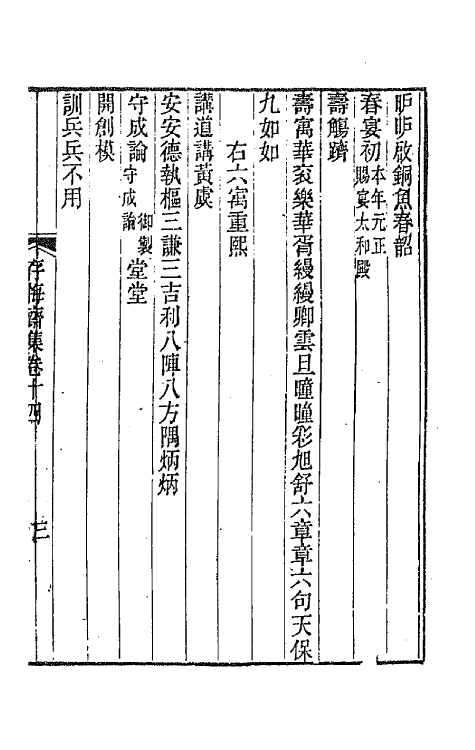 昈昈啟銅魚春韶
春宴初本年元正
賜宴太和殿
壽觴躋
壽寓華袞樂華胥縵縵卿雲旦曈曈彩旭舒六章章六句天保
九如如
右六寓重熙
講道講黃虞
安安德執樞三謙三吉利八陣八方隅炳炳
守成論御製
守成論堂堂
開創模
訓兵兵不用
存悔齋集卷十四
三